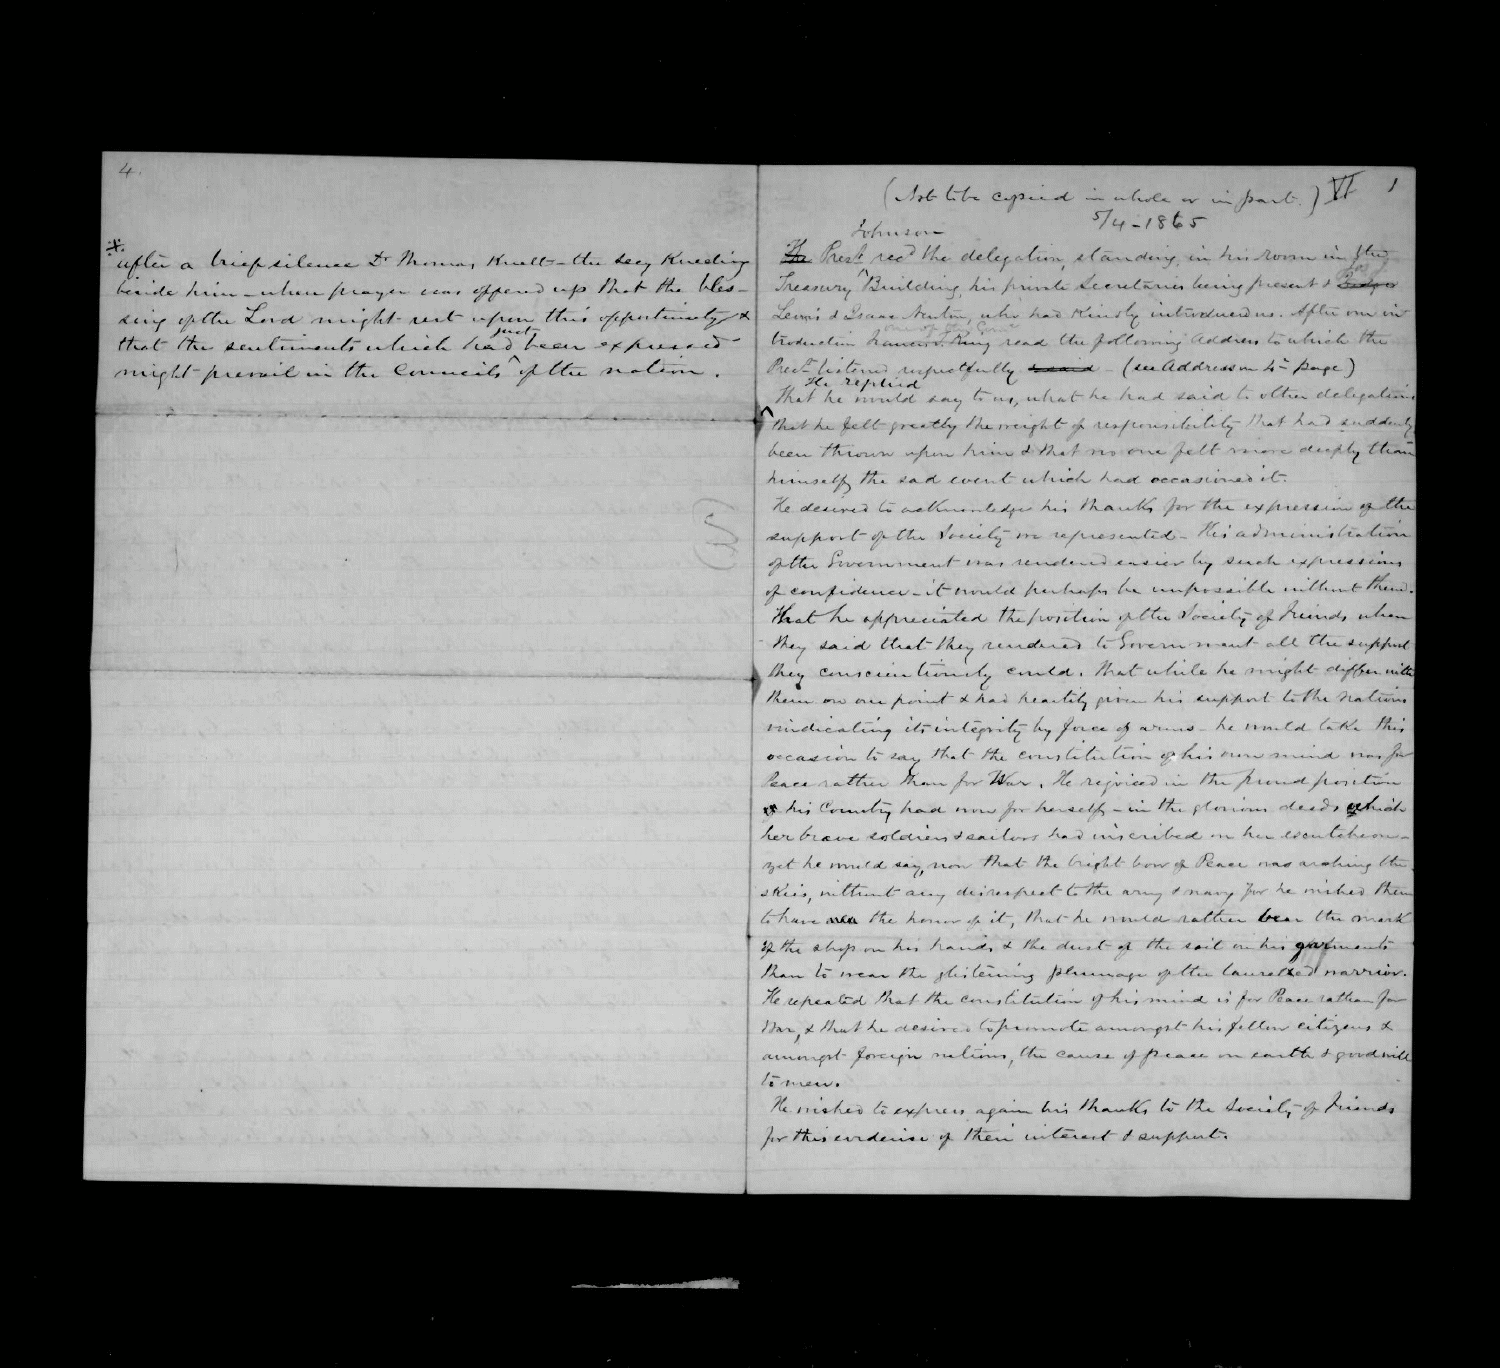 4.
* after a brief silence Dr Thomas Knelt – the Secy Kneeling
beside him – when prayer was offered up that the bles-
sing of the Lord might rest upon this opportunity &
just
that the sentiments which had been expressed
might prevail in the Councils of the nation.
(Not to be copied in whole or in part.) VI 1
5/4 – 1865
Johnson
The Prest recd the delegation, standing in his room in the
Treasury Building, his private Secretaries being present &
Lewis & Isaac Newton, who had kindly introduced us. After our in
one of the Comee
troduction Francis T. King read the following Address to which the
Prest listened respectfully & said – (see Address on 4th page)
He replied
That he would say to us, what he had said to other delegations
that he felt greatly the weight of responsibility that had suddenly
been thrown upon him & that no one felt more deeply than
himself, the sad event which had occasioned it.
He desired to acknowledge his thanks for the expression of the
support of the Society we represented – His administration
of the Government was rendered easier by such expressions
of confidence – it would perhaps be impossible without them.
That he appreciated the position of the Society of Friends when
they said that they rendered to Government all the support
they conscientiously could. That while he might differ with
them on one point & had heartily given his support to the nations
vindicating its integrity by force of arms – he would take this
occasion to say that the constitution of his own mind was for
Peace rather than for War. He rejoiced in the proud position
his Country had won for herself – in the glorious deeds which
her brave soldiers & sailors had inscribed on her escutcheon –
yet he would say, now that the bright bow of Peace was arching the
skies, without any disrespect to the army & navy for he wished them
to have all the honor of it, that he would rather bear the mark
of the shop on his hands & the dust of the soil on his garments
than to wear the glistening plumage of the laurelled warrior.
He repeated that the constitution of his mind is for Peace rather for
War, & that he desired to promote amongst his fellow citizens &
amongst foreign nations, the cause of peace on earth & good will
to men.
He wished to express again his thanks to the Society of Friends
for this evidence of their interest & support.